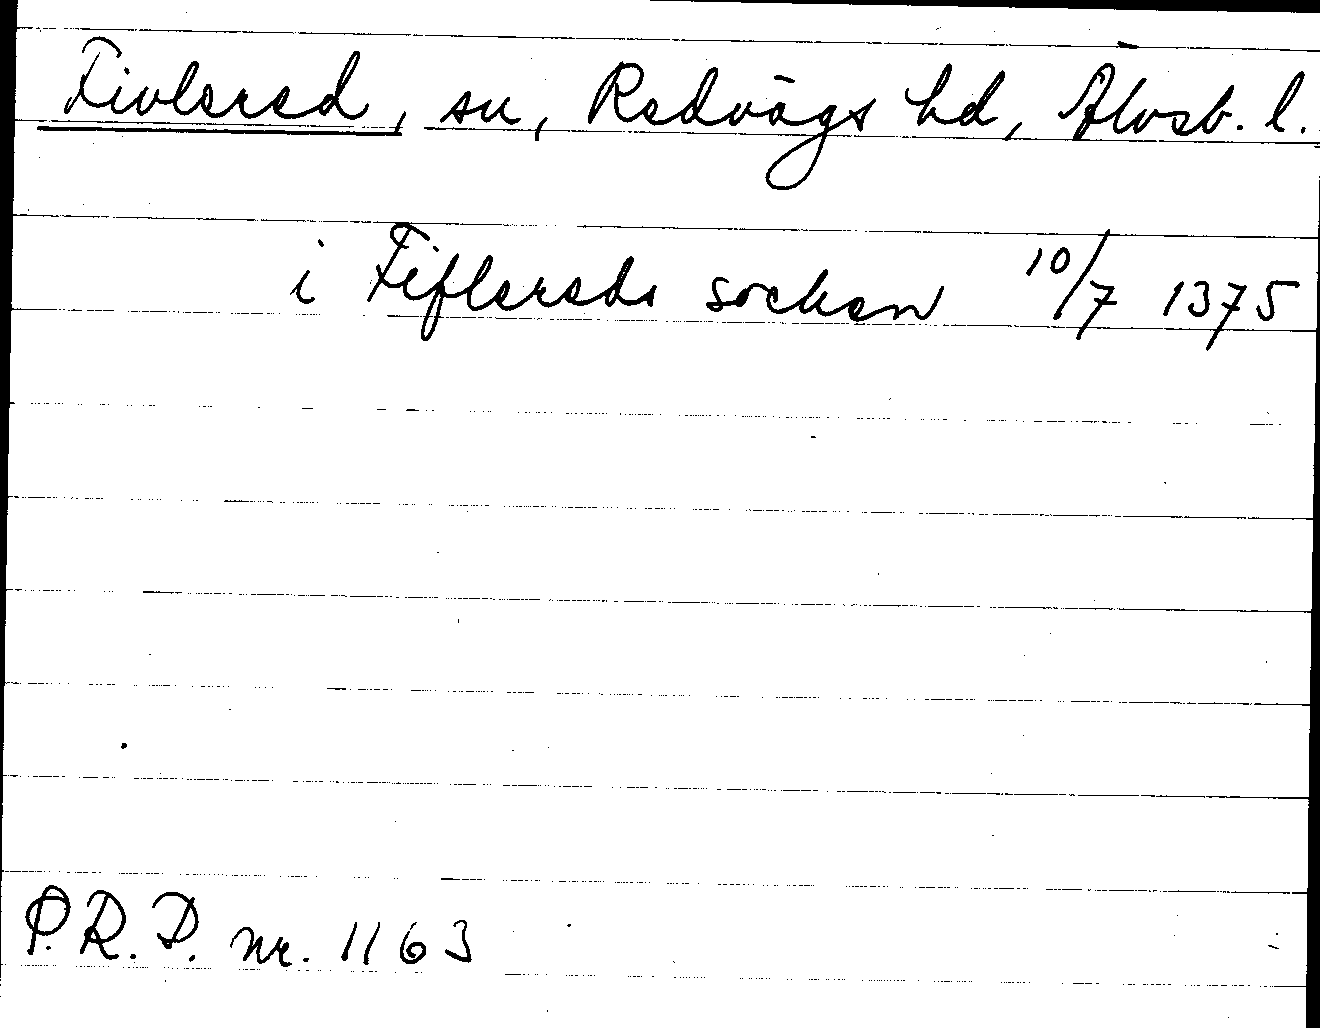 Fivlered, sn, Redvägs hd, Älvsb. l.
i Fiflereds socken 10/7 1375
P.R.D. nr. 1163